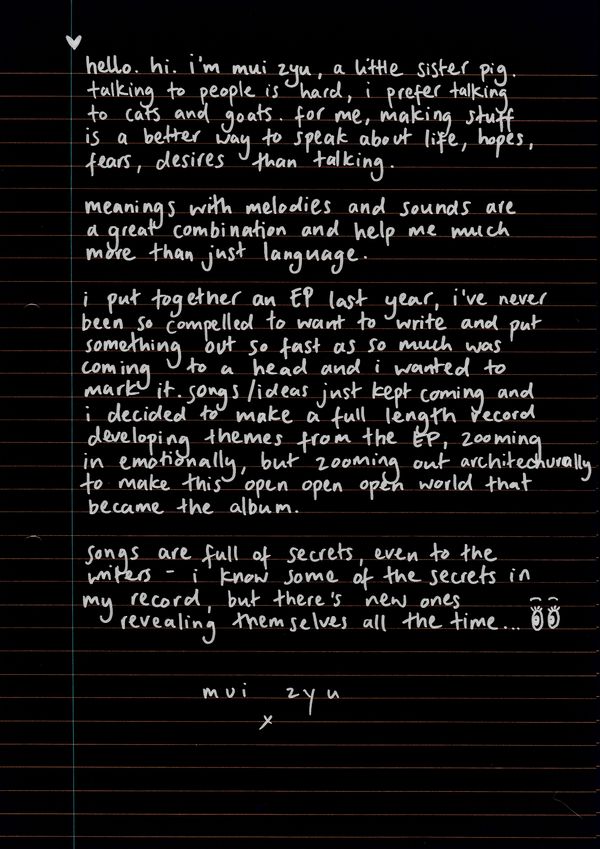 hello. hi. i'm mui zyu, a little sister pig.
talking to people is hard, i prefer talking
to cats and goats. for me, making stuff
is a better way to speak about life, hopes,
fears, desires than talking.
meanings with melodies and sounds are
a great combination and help me much
more than just language.
i put together an EP last year, i've never
been so compelled to want to write and put
something out so fast as so much was
coming to a head and i wanted to
mark it. songs/ideas just kept coming and
i decided to make a full length record
developing themes from the EP, zooming
in emotionally, but zooming out architechurally
to make this open open open world that
became the album.
songs are full of secrets, even to the
writers - i know some of the secrets in
my record, but there's new ones
revealing themselves all the time...
mui zyu
x